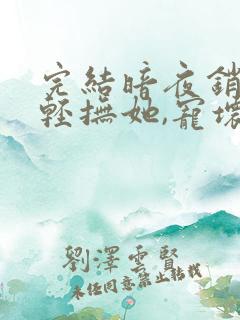 完結暗夜銷
輕撫她,寵壞
劉澤雲賢
未經同意禁止轉載